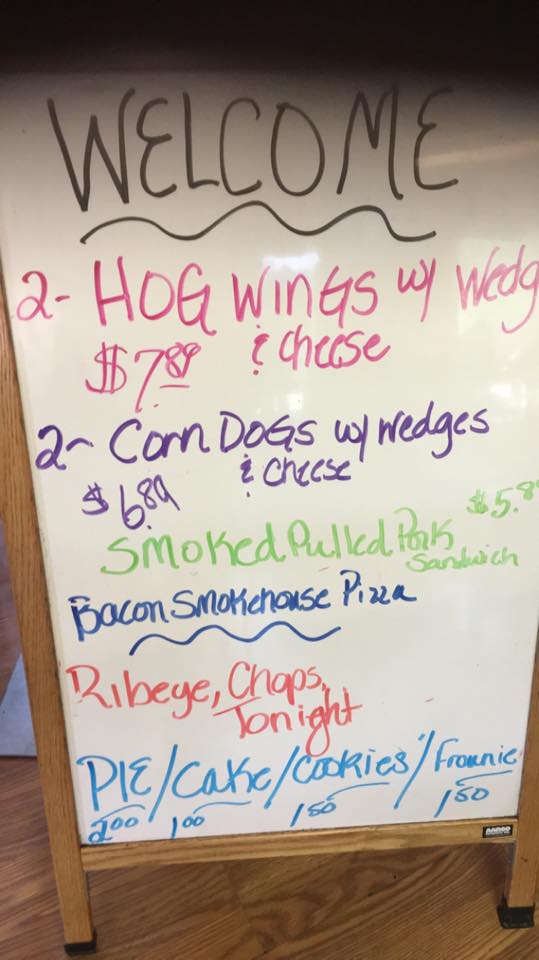 WELCOME
2- HOG WINGS w/ Wedg
$7.89 & cheese
2- Corn DOGS w/ wedges
$6.89 & cheese
Smoked Pulled Pork $5.8
Sandwich
Bacon Smokehouse Pizza
Ribeye, Chops,
Tonight
PIE/Cake/Cookies/Frownie
2.00 1.00 1.50 1.50